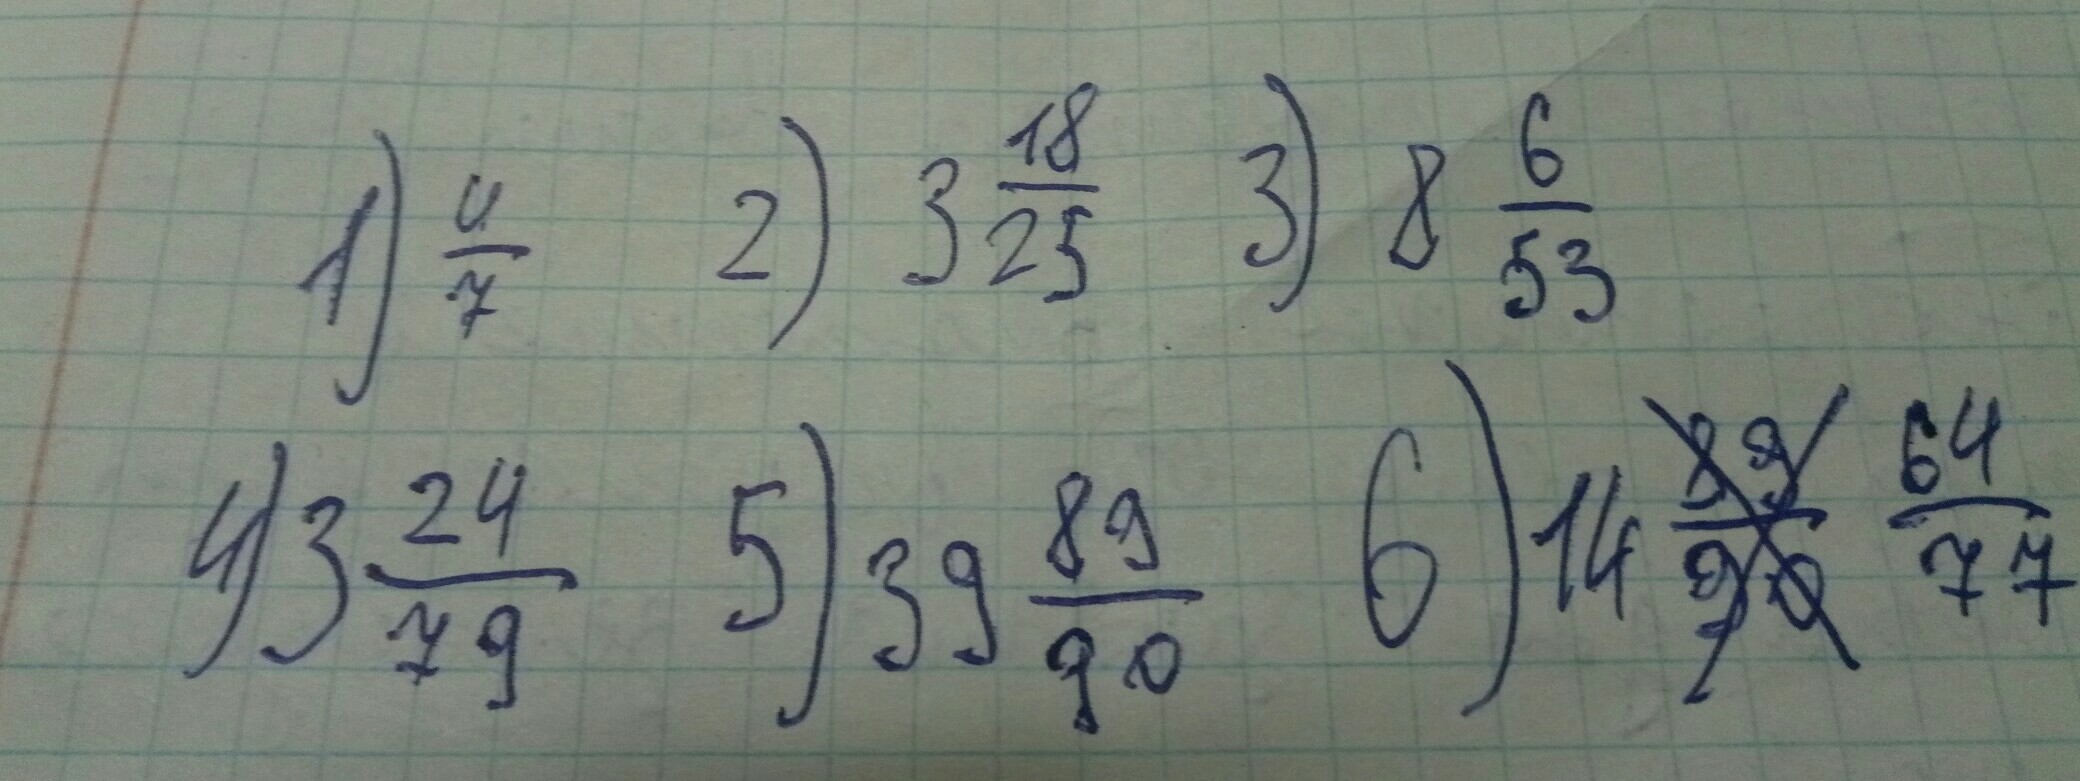 1) 4/7 2) 3 18/25 3) 8 6/53
4) 3 24/79 5) 39 89/90 6) 14 89/90 64/77